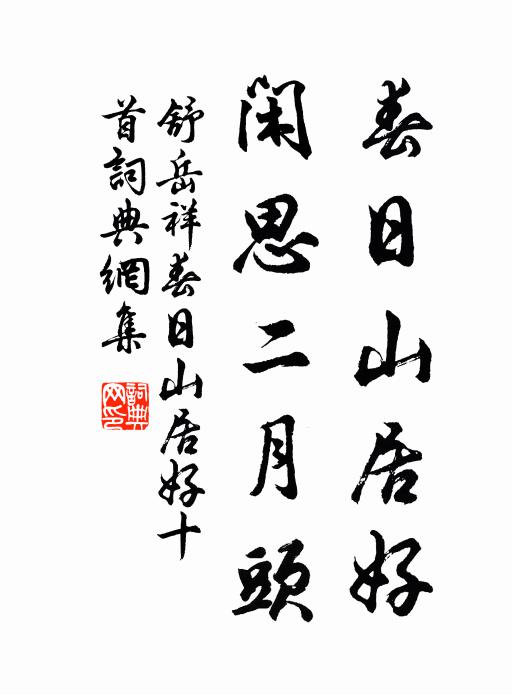 春日山居好
閑思二月頭
舒岳祥春日山居好十
首詞典網集
詞典
网印